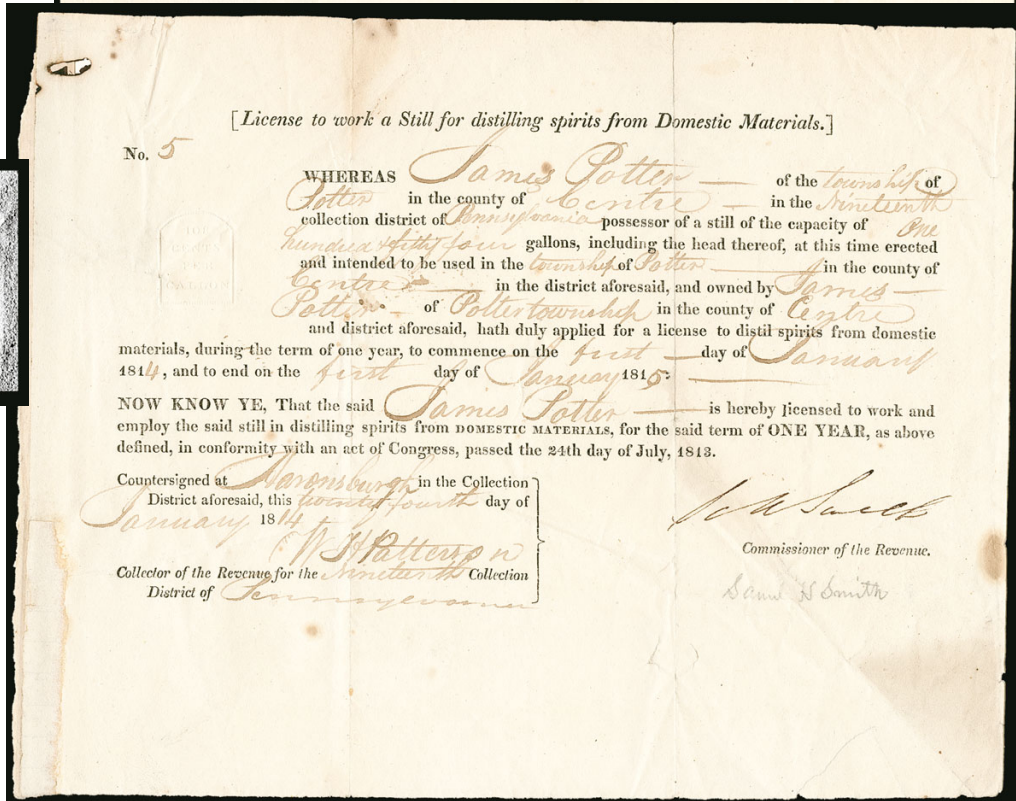 [License to work a Still for distilling spirits from Domestic Materials.]
No. 5
WHEREAS James Potter of the township of
Potter in the county of Centre in the Nineteenth
collection district of Pennsylvania possessor of a still of the capacity of One
hundred & fifty four gallons, including the head thereof, at this time erected
and intended to be used in the township of Potter in the county of
Centre in the district aforesaid, and owned by James
Potter of Potter township in the county of Centre
and district aforesaid, hath duly applied for a license to distil spirits from domestic
materials, during the term of one year, to commence on the first day of January
1814, and to end on the first day of January 1815:
NOW KNOW YE, That the said James Potter is hereby licensed to work and
employ the said still in distilling spirits from DOMESTIC MATERIALS, for the said term of ONE YEAR, as above
defined, in conformity with an act of Congress, passed the 24th day of July, 1813.
Countersigned at Aaronsburgh in the Collection
District aforesaid, this twenty fourth day of
January 1814
W H Patterson
Collector of the Revenue for the Nineteenth Collection
District of Pennsylvania
Commissioner of the Revenue.
Saml H Smith